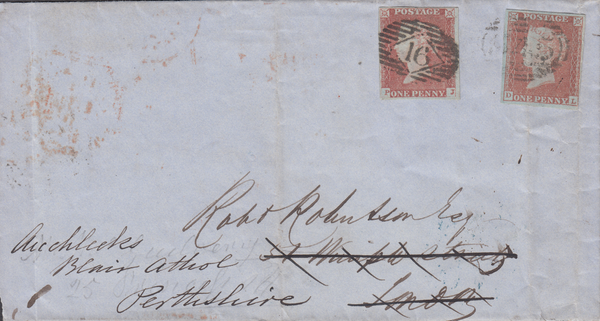 POSTAGE
ONE PENNY
16
POSTAGE
ONE PENNY
Robt Robertson Esq
Auchleeks
Blair Athol
Perthshire
London